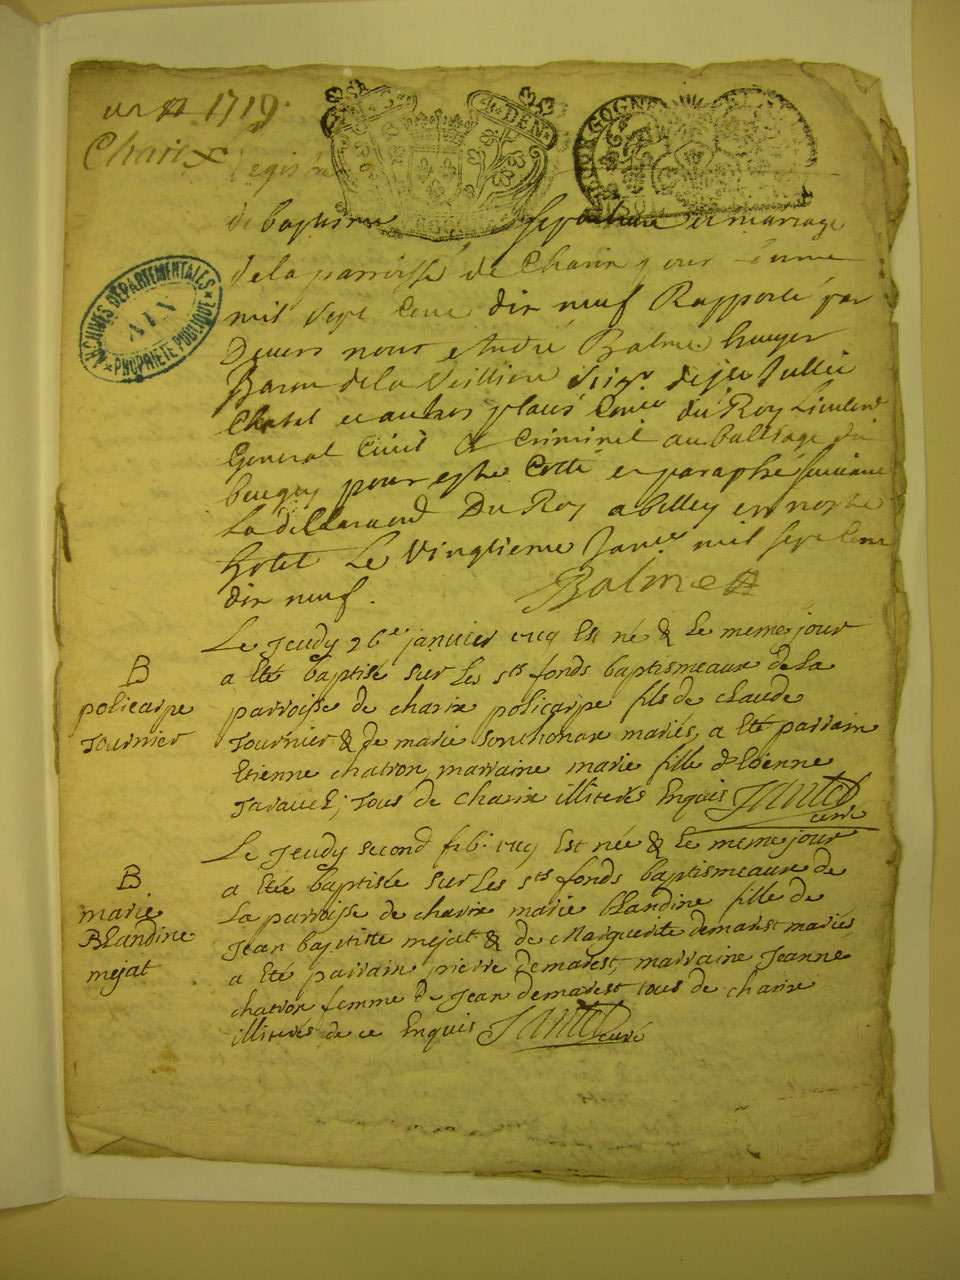 1719.
Charix
Registre
BOURGOGNE
de baptesme sepulture et mariage
de la parroisse de Charix pour
mil sept cent dix neuf Rapporté par
Devers nous André Balme
Baron de la
Chatel et autres places Coner du Roy Lieutent
General Civil & Criminel au balliage du
bugey pour estre Cotté et paraphé suivant
La declaraond Du Roy a belley en nostre
hotel Le Vingtieme Janer mil sept cent
dix neuf. Balme
ARCHIVES DÉPARTEMENTALES
AIN
PROPRIÉTÉ PUBLIQUE
B
policarpe
Tournier
Le Jeudy 26e janvier est né & le meme jour
a été baptisé sur les sts fonds baptismeaux de la
parroisse de charix policarpe fils de claude
Tournier & de marie mariés, a été parrain
Etienne chatron marraine marie fille d'Etienne
tous de charix illiterés Enquis
curé
B
marie
Blandine
mejat
Le Jeudy second feb. est née & le meme jour
a étée baptisée sur les sts fonds baptismeaux de
la parroisse de charix marie Blandine fille de
Jean baptiste mejat & de Marguerite demarest mariés
a été parrain pierre demarest, marraine Jeanne
chatron femme de Jean demarest tous de charix
illiterés de ce Enquis curé